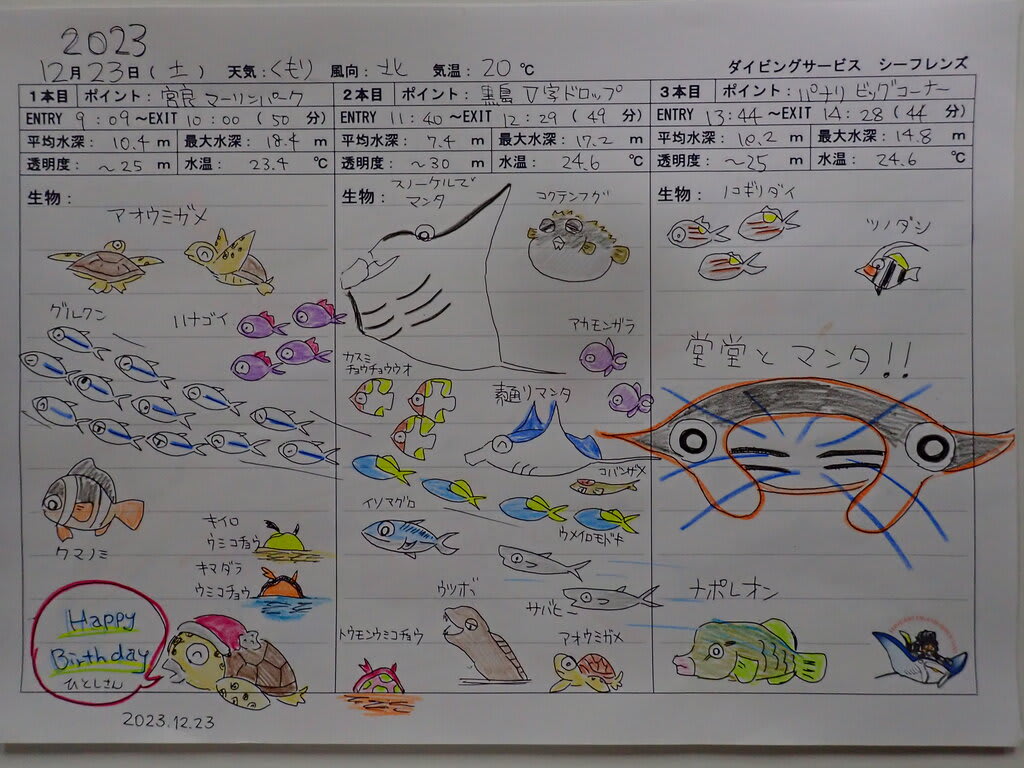 2023
12月23日(土) 天気:くもり 風向:北 気温:20℃ ダイビングサービス シーフレンズ
1本目 ポイント:宮良 マーリンパーク
ENTRY 9:09~EXIT 10:00(50分)
平均水深: 10.4 m 最大水深: 18.4 m
透明度: ~25 m 水温: 23.4 ℃
生物:
アオウミガメ
グルクン
ハナゴイ
クマノミ
キイロ
ウミコチョウ
キマダラ
ウミコチョウ
Happy
Birthday
ひとしさん
2023.12.23
2本目 ポイント:黒島 V字ドロップ
ENTRY 11:40~EXIT 12:29(49分)
平均水深: 7.4 m 最大水深: 17.2 m
透明度: ~30 m 水温: 24.6 ℃
生物:
スノーケルで
マンタ
コクテンフグ
アカモンガラ
カスミ
チョウチョウウオ
素通りマンタ
コバンザメ
イソマグロ
ウメイロモドキ
ウツボ
サバヒー
トウモンウミコチョウ
アオウミガメ
3本目 ポイント:パナリ ビッグコーナー
ENTRY 13:44~EXIT 14:28(44分)
平均水深: 10.2 m 最大水深: 14.8 m
透明度: ~25 m 水温: 24.6 ℃
生物:
ノコギリダイ
ツノダシ
堂堂とマンタ!!
ナポレオン